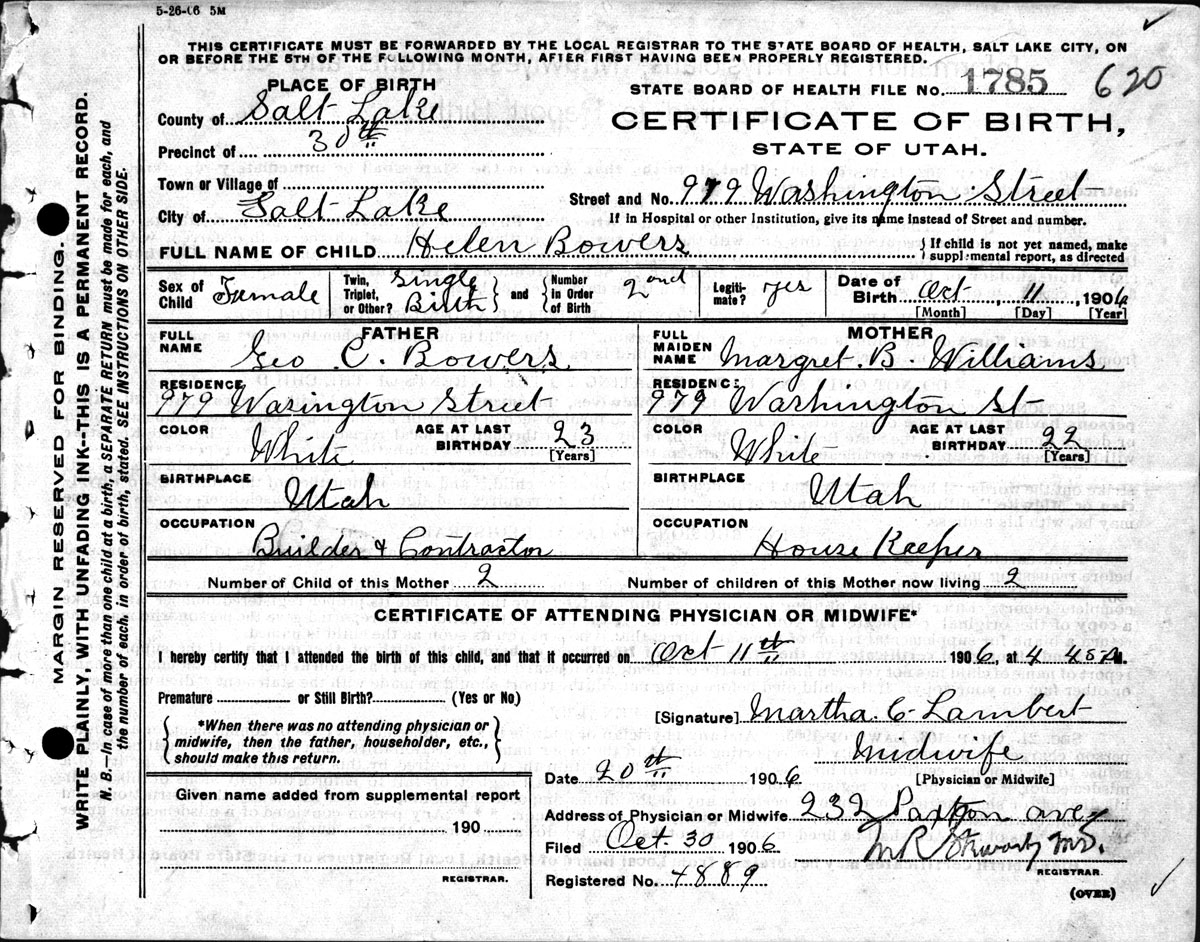 5-26-06 5M
THIS CERTIFICATE MUST BE FORWARDED BY THE LOCAL REGISTRAR TO THE STATE BOARD OF HEALTH, SALT LAKE CITY, ON
OR BEFORE THE 5TH OF THE FOLLOWING MONTH, AFTER FIRST HAVING BEEN PROPERLY REGISTERED.
PLACE OF BIRTH
STATE BOARD OF HEALTH FILE No. 1785 620
County of Salt Lake
CERTIFICATE OF BIRTH,
Precinct of 30th
STATE OF UTAH.
Town or Village of
Street and No. 979 Washington Street
City of Salt Lake
If in Hospital or other Institution, give its name instead of Street and number.
FULL NAME OF CHILD Helen Bowers
If child is not yet named, make
supplemental report, as directed
Sex of Child Female
Twin, Triplet, or Other? Single Birth and Number in Order of Birth 2nd
Legitimate? yes
Date of Birth Oct 11, 1906
[Month] [Day] [Year]
FATHER
FULL NAME Geo C. Bowers
RESIDENCE
979 Wasington Street
COLOR White AGE AT LAST BIRTHDAY 23
[Years]
BIRTHPLACE Utah
OCCUPATION
Builder & Contractor
MOTHER
FULL MAIDEN NAME Margret B. Williams
RESIDENCE
979 Washington St
COLOR White AGE AT LAST BIRTHDAY 22
[Years]
BIRTHPLACE Utah
OCCUPATION
House Kaeper
Number of Child of this Mother 2 Number of children of this Mother now living 2
CERTIFICATE OF ATTENDING PHYSICIAN OR MIDWIFE*
I hereby certify that I attended the birth of this child, and that it occurred on Oct 11th 1906, at 4 45 A M.
Premature or Still Birth? (Yes or No)
*When there was no attending physician or
midwife, then the father, householder, etc.,
should make this return.
[Signature] Martha C Lambert
Midwife
[Physician or Midwife]
Date 20th 1906
Address of Physician or Midwife 232 Paxton ave
Filed Oct. 30 1906
M.D.
REGISTRAR.
Registered No. 4889
(OVER)
Given name added from supplemental report
190
REGISTRAR.
MARGIN RESERVED FOR BINDING.
WRITE PLAINLY, WITH UNFADING INK--THIS IS A PERMANENT RECORD.
N. B.—In case of more than one child at a birth, a SEPARATE RETURN must be made for each, and
the number of each, in order of birth, stated. SEE INSTRUCTIONS ON OTHER SIDE.